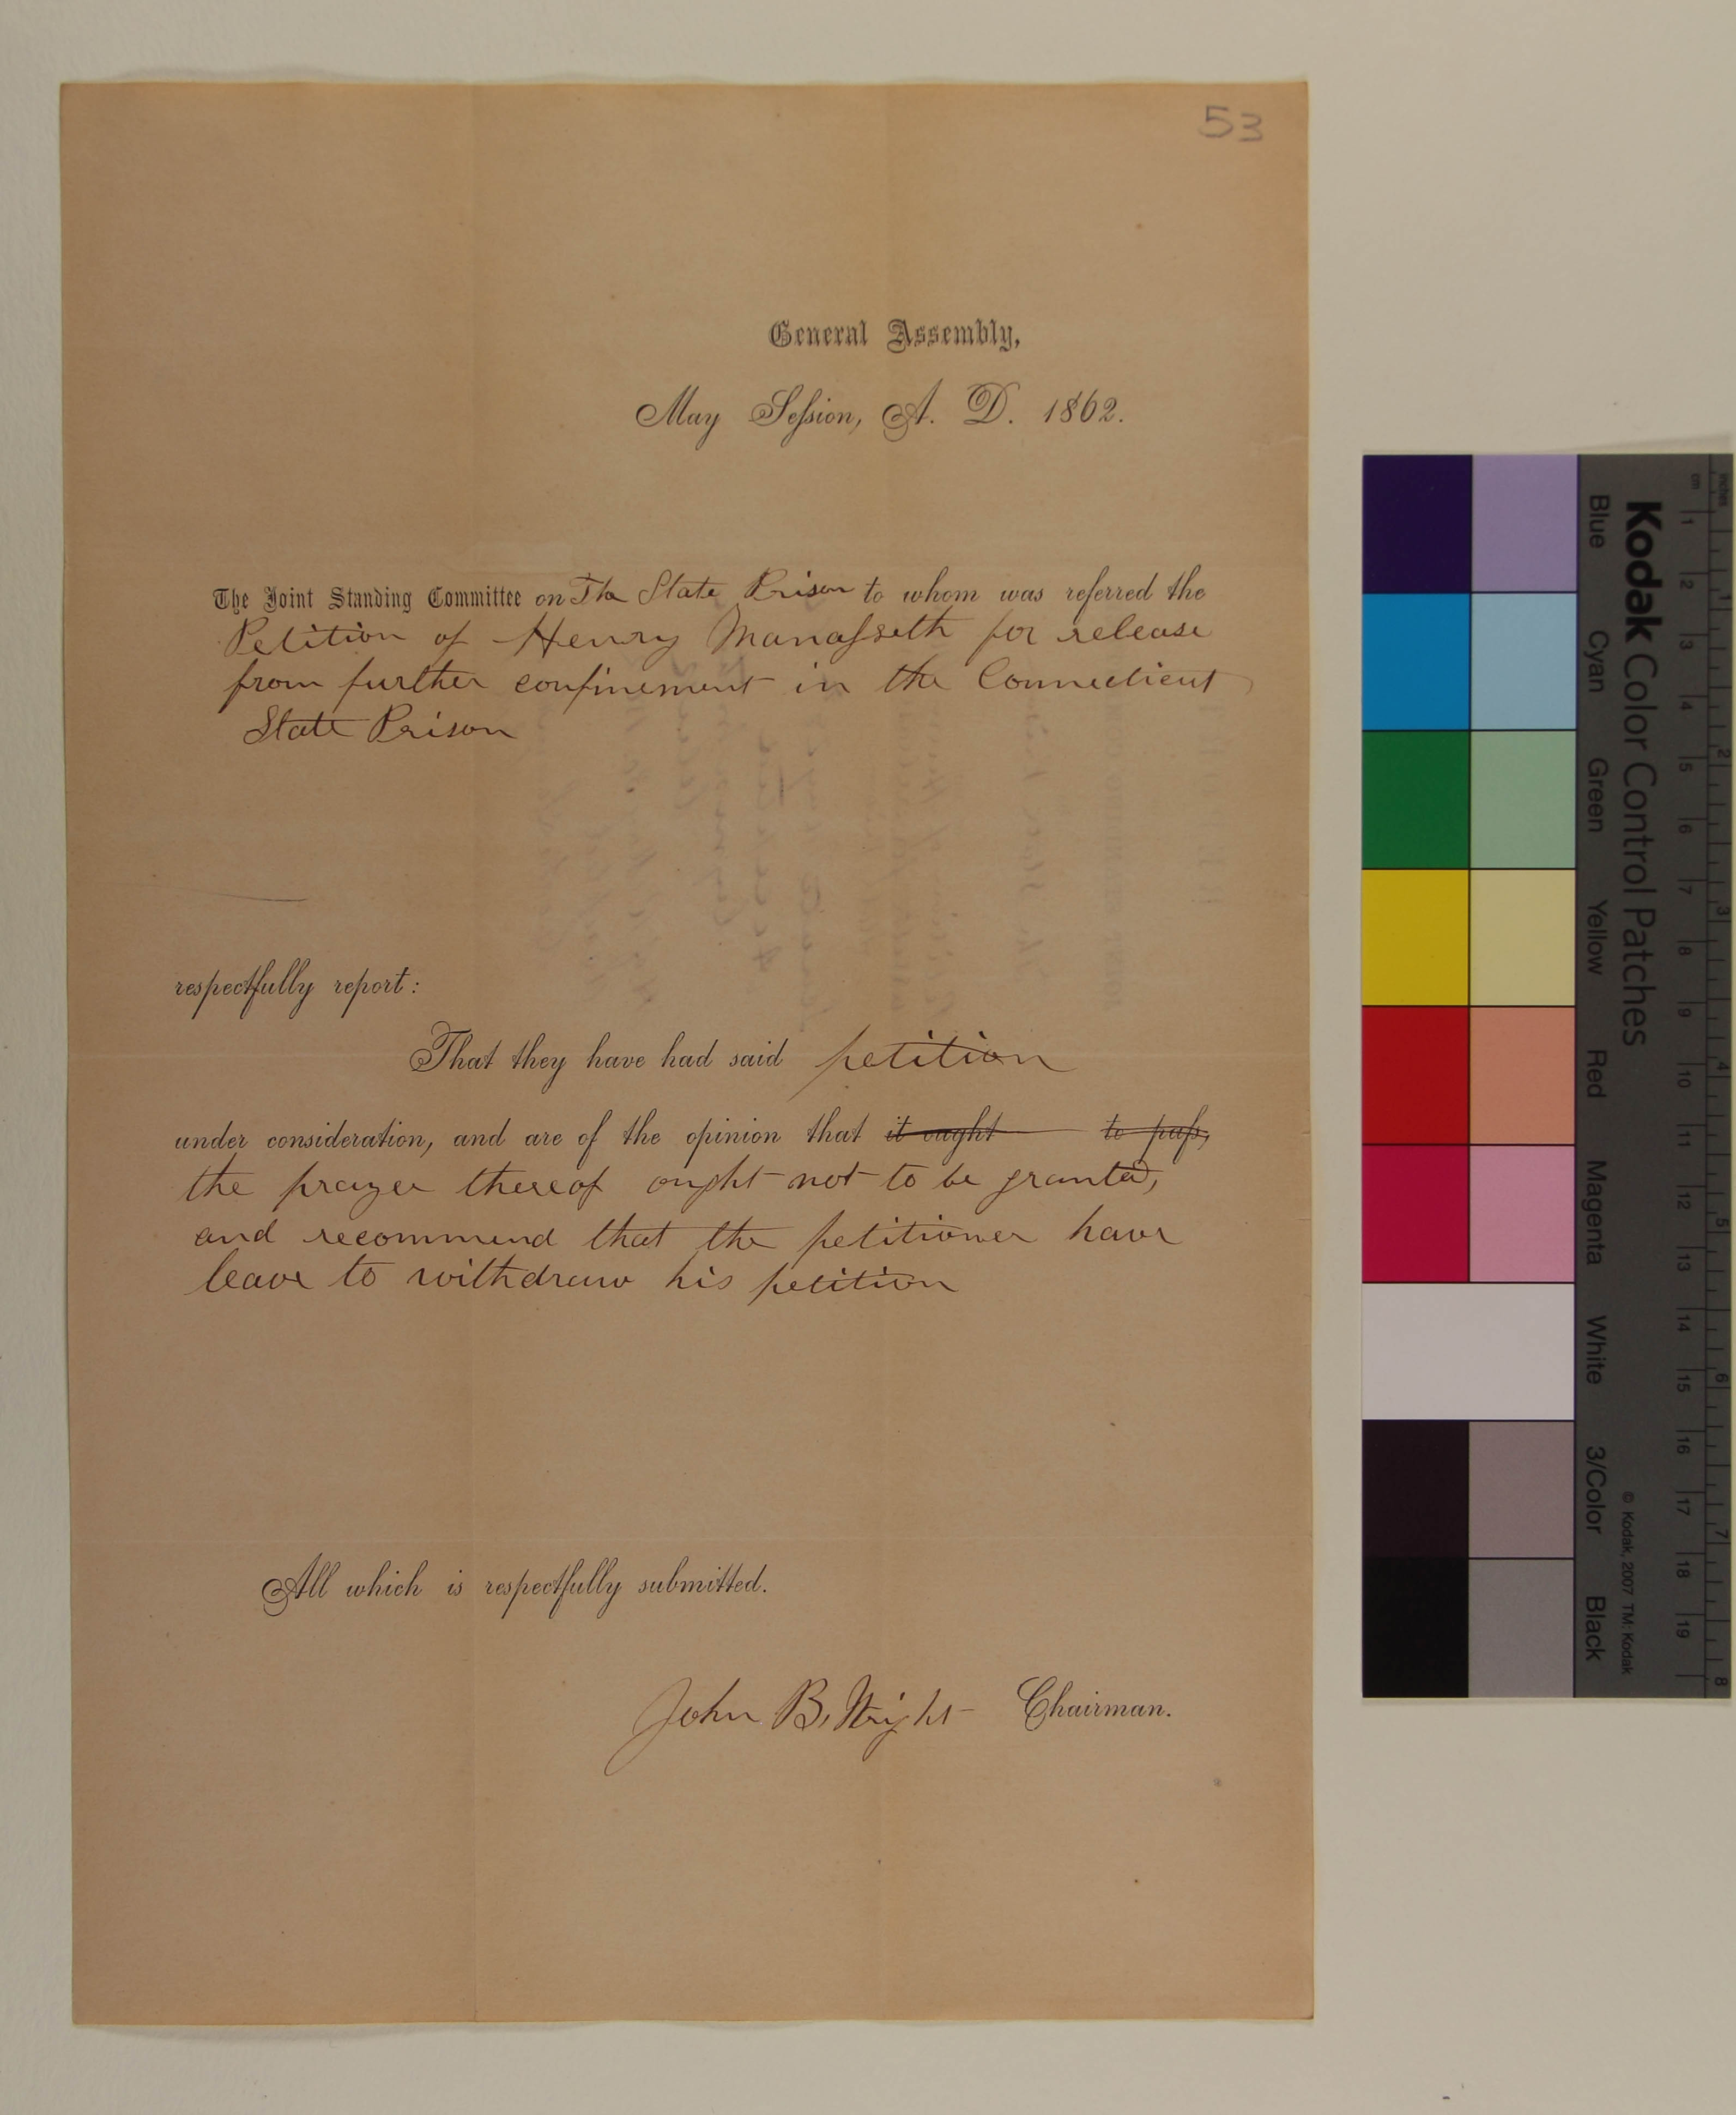 53
General Assembly,
May Session, A. D. 1862.
The Joint Standing Committee on The State Prison to whom was referred the
Petition of Henry Manasseth for release
from further confinement in the Connecticut
State Prison
respectfully report:
That they have had said petition
under consideration, and are of the opinion that it ought to pass,
the prayer thereof ought not to be granted,
and recommend that the petitioner have
leave to withdraw his petition
All which is respectfully submitted.
John B. Wright Chairman.
Kodak Color Control Patches
© Kodak, 2007 TM: Kodak
Blue Cyan Green Yellow Red Magenta White 3/Color Black
cm 1 2 3 4 5 6 7 8 9 10 11 12 13 14 15 16 17 18 19
inches 1 2 3 4 5 6 7 8